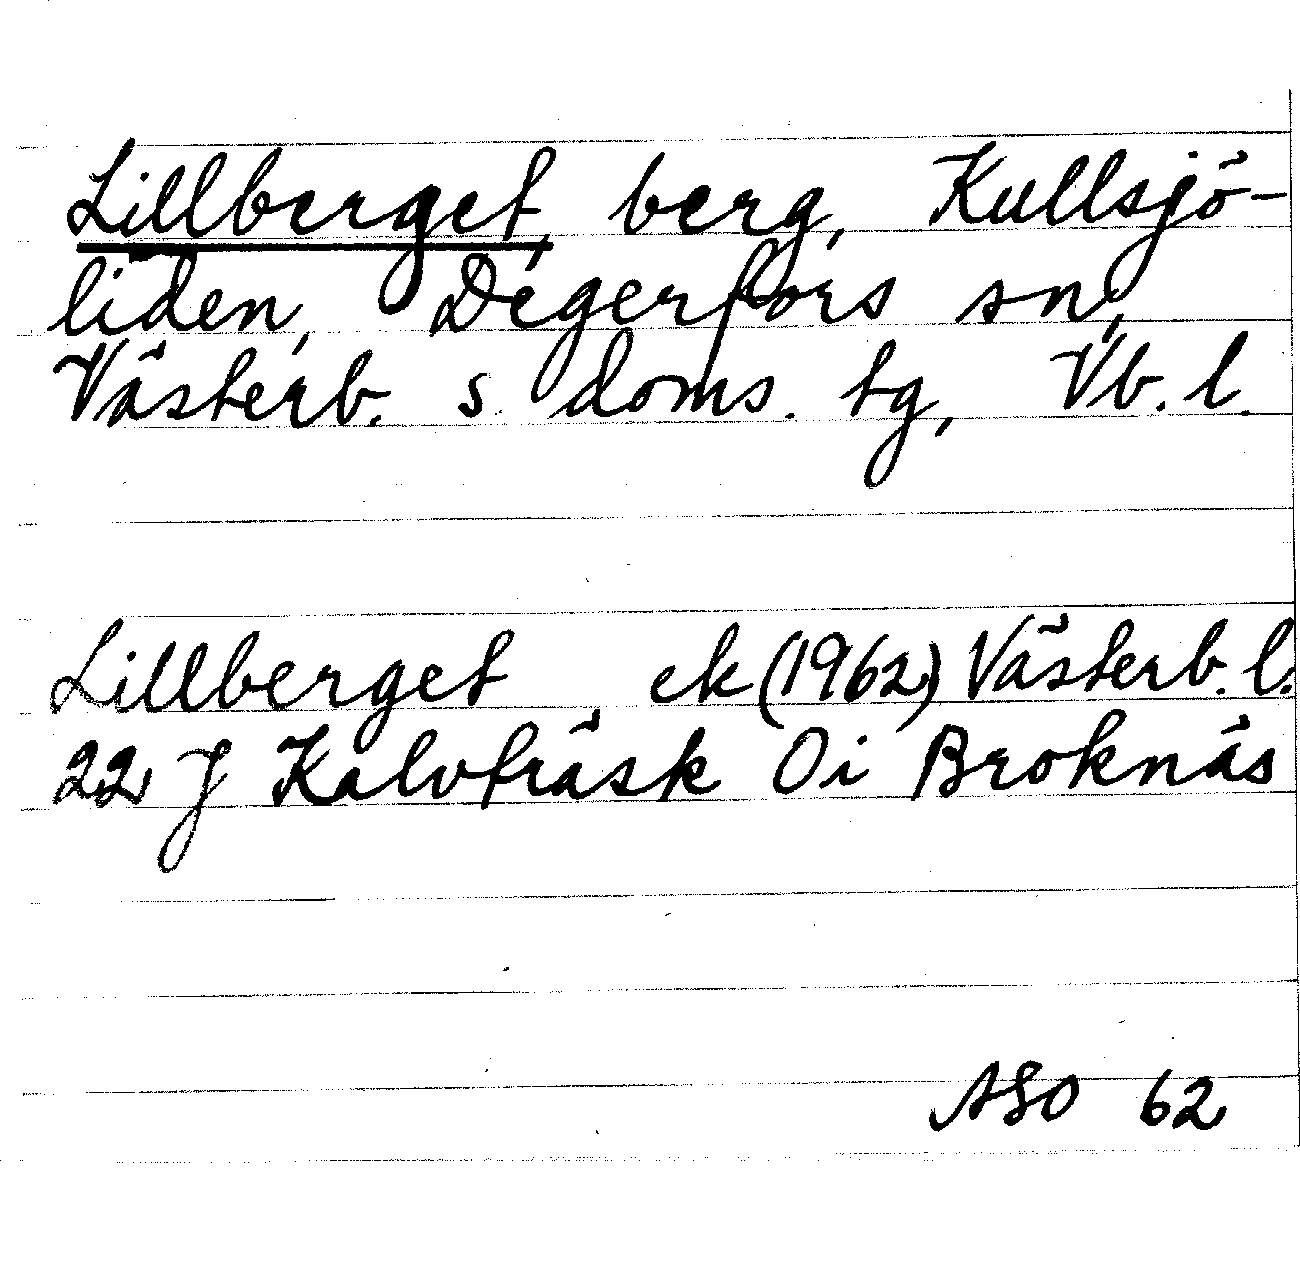 Lillberget, berg, Kullsjö-
liden, Degerfors sn,
Västerb. s. doms. tg, Vb. l.
Lillberget ek (1962) Västerb. l.
22 J Kalvträsk 0i Broknäs
ASO 62